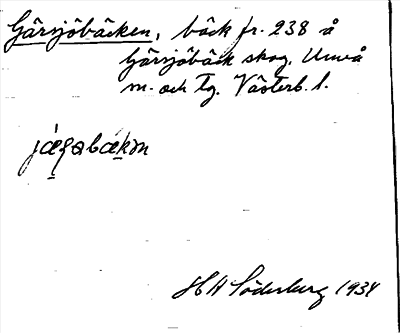 Gärsjöbäcken, bäck fr. 238 å
Gärsjöbäck skog, Umeå
m. och Tg. Västerb. l.
H A Söderberg 1934